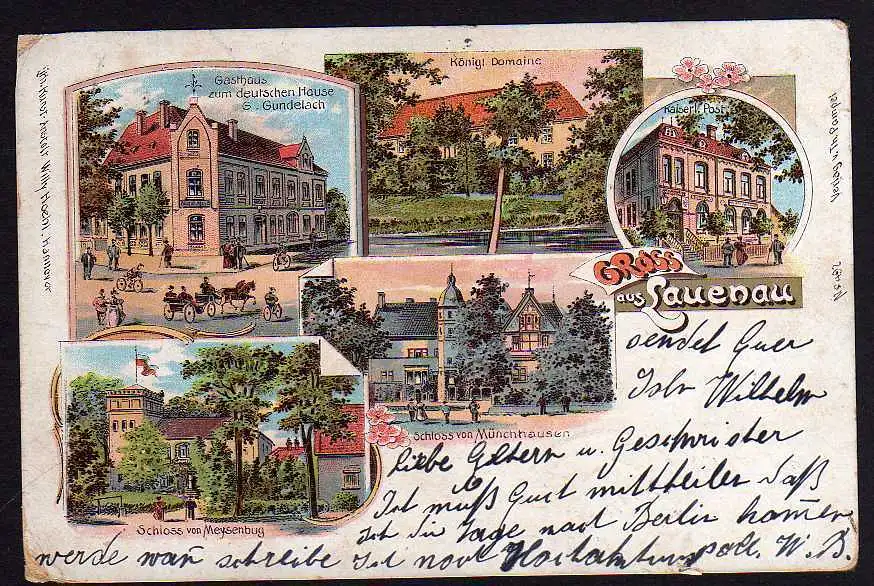 Gasthaus
zum deutschen Hause
G. Gundelach
Königl Domaine
Kaiserl. Post
GRUSS
aus Lauenau
Schloss von Münchhausen
Schloss von Meysenbug
Willy Hoern. Hannover
sendet Euer
Wilhelm
Liebe Eltern u. Geschwister
Ich muß Euch mittheilen daß
Ich die Tage nach Berlin kommen
werde wan schreibe Ich noch W. B.